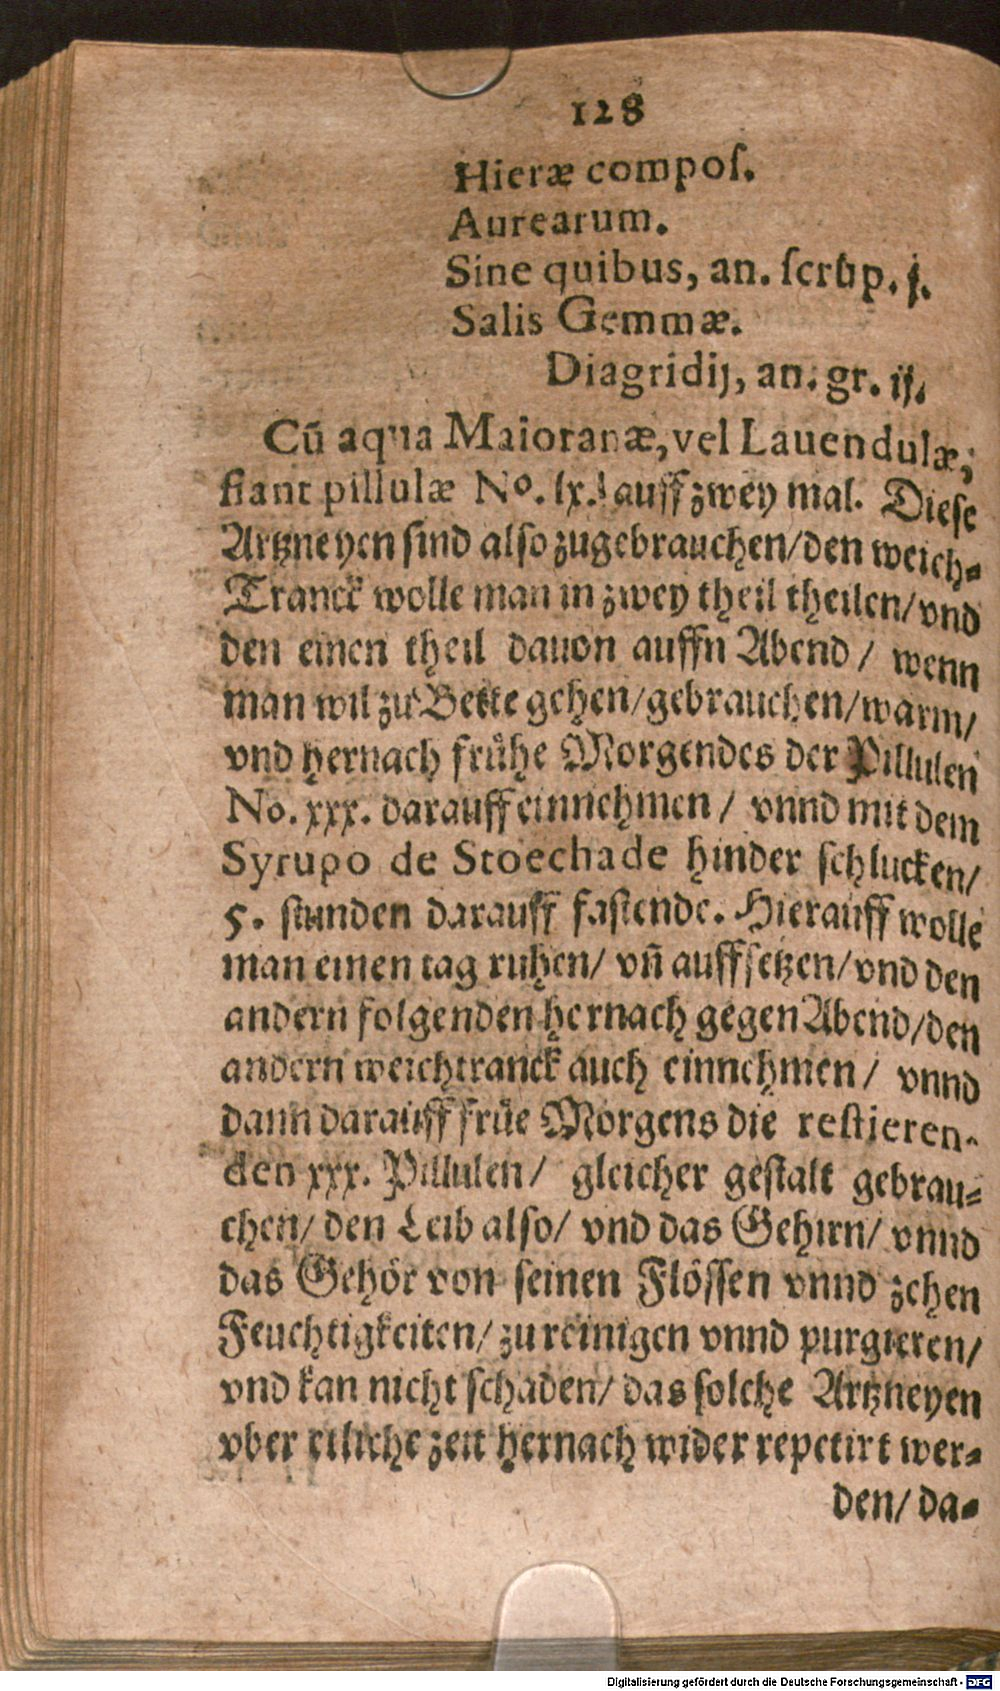 128
Hieræ compoſ.
Aurearum.
Sine quibus, an. ſcrup. j.
Salis Gemmæ.
Diagridij, an. gr. ij.
Cũ aqua Maioranæ, vel Lauendulæ,
fiant pillulæ Nº. lx. auff zwey mal. Dieſe
Artzneyen ſind alſo zugebrauchen/den weich-
Tranck wolle man in zwey theil theilen/vnd
den einen theil dauon auffn Abend/ wenn
man wil zu Bette gehen/gebrauchen/warm/
vnd hernach frühe Morgendes der Pillulen
No. xxx. darauff einnehmen/ vnnd mit dem
Syrupo de Stoechade hinder ſchlucken/
5. ſtunden darauff faſtende. Hierauff wolle
man einen tag ruhen/ vñ auffſetzen/vnd den
andern folgenden hernach gegen Abend/den
andern weichtranck auch einnehmen/ vnnd
dann darauff früe Morgens die reſtieren-
den xxx. Pillulen/ gleicher geſtalt gebrau-
chen/ den Leib alſo/ vnd das Gehirn/ vnnd
das Gehör von ſeinen Flöſſen vnnd zehen
Feuchtigkeiten/ zu reinigen vnnd purgieren/
vnd kan nicht ſchaden/ das ſolche Artzneyen
vber etliche zeit hernach wider repetirt wer-
den/ da-
Digitalisierung gefördert durch die Deutsche Forschungsgemeinschaft - DFG